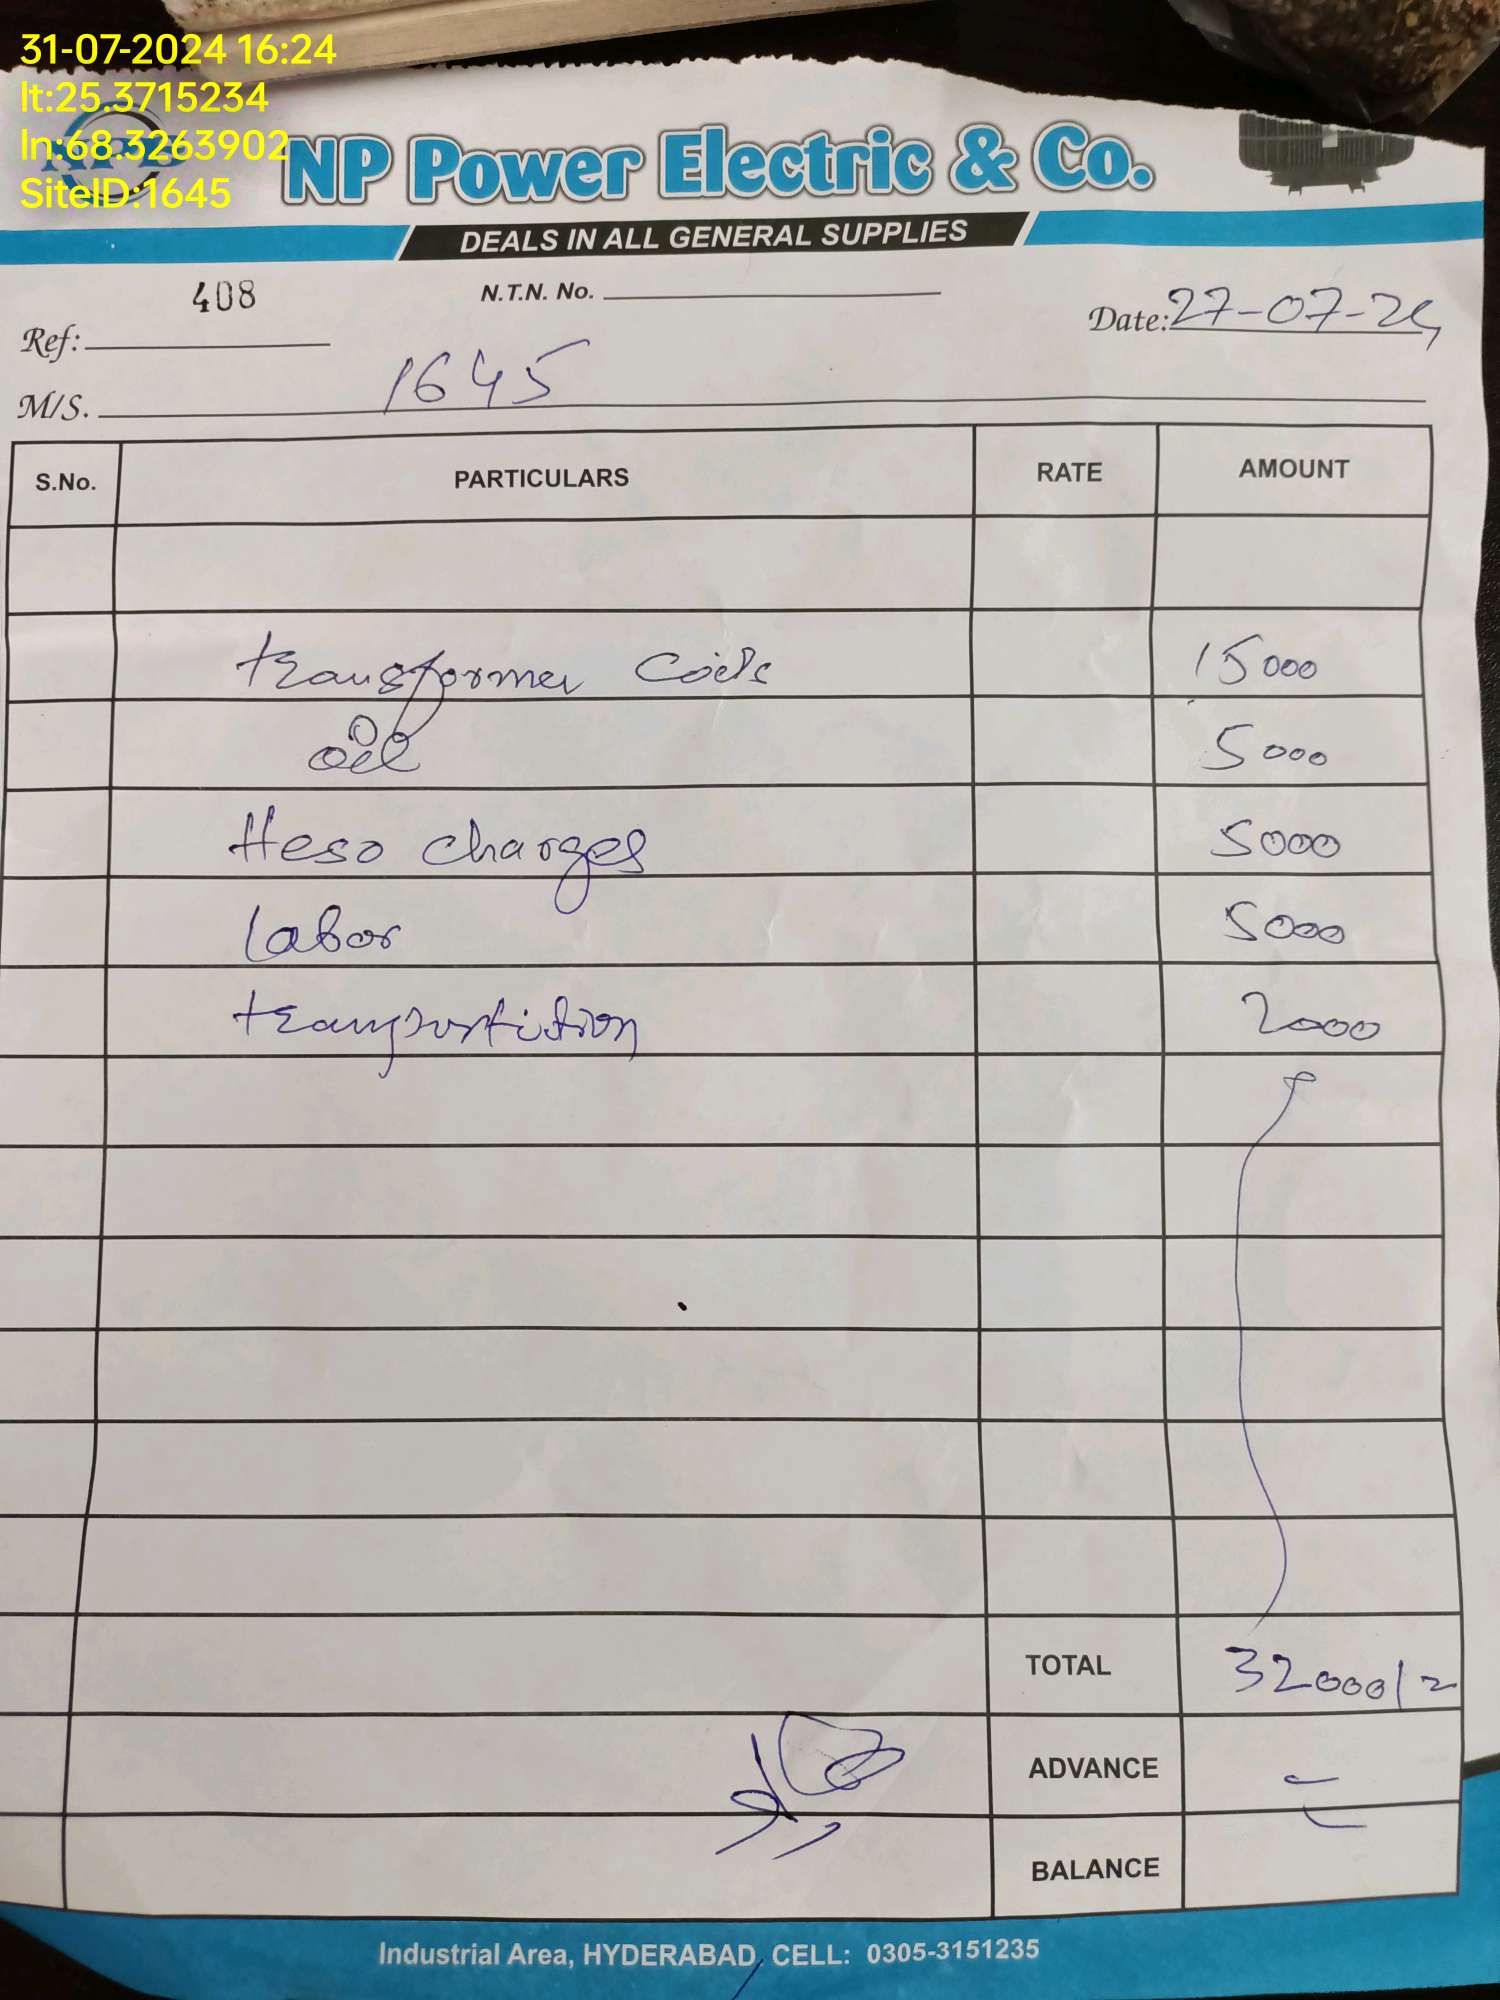 31-07-2024 16:24
lt:25.3715234
ln:68.3263902
SiteID:1645
NP Power Electric & Co.
DEALS IN ALL GENERAL SUPPLIES
408
N.T.N. No.
Ref:
Date: 27-07-24
M/S. 1645
S.No. PARTICULARS RATE AMOUNT
transformer Coils 15000
oil 5000
Heso charges 5000
Labor 5000
transportition 2000
TOTAL 32000/=
ADVANCE
BALANCE
Industrial Area, HYDERABAD, CELL: 0305-3151235